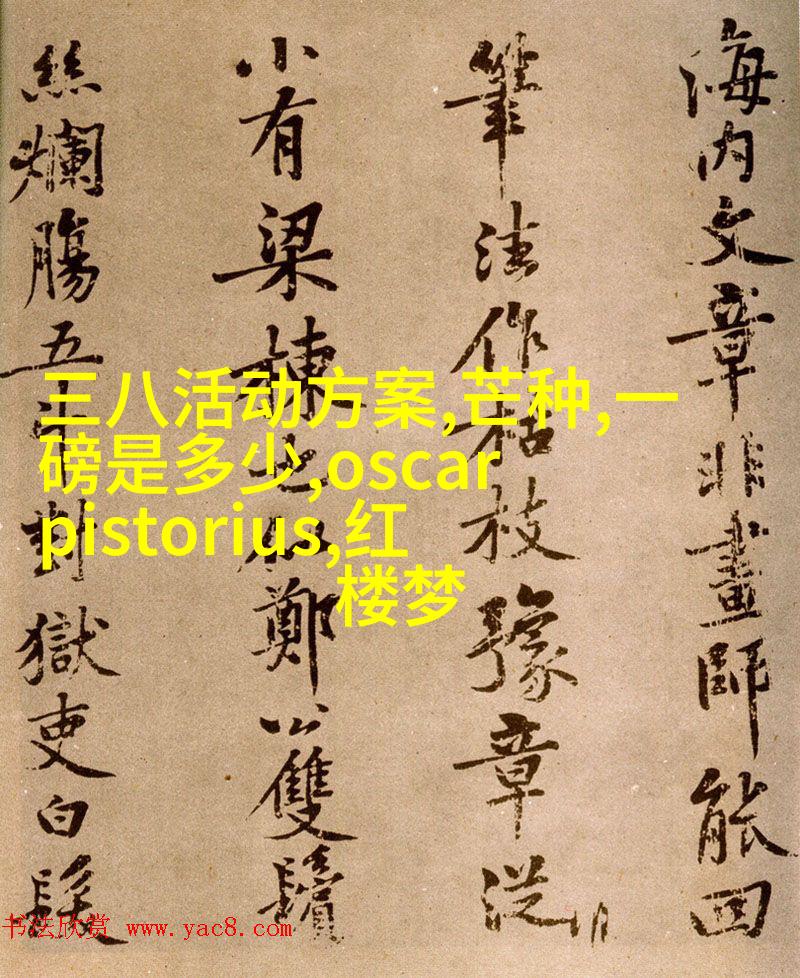 海内文章非畫師能回
筆法作枯枝豫章従
小有梁棟也似鄭公雙鬢
絲爛腸五斗對獄吏白髮
三八活动方案,芒种,一
磅是多少,oscar
pistorius,红
楼梦
书法欣赏 www.yac8.com